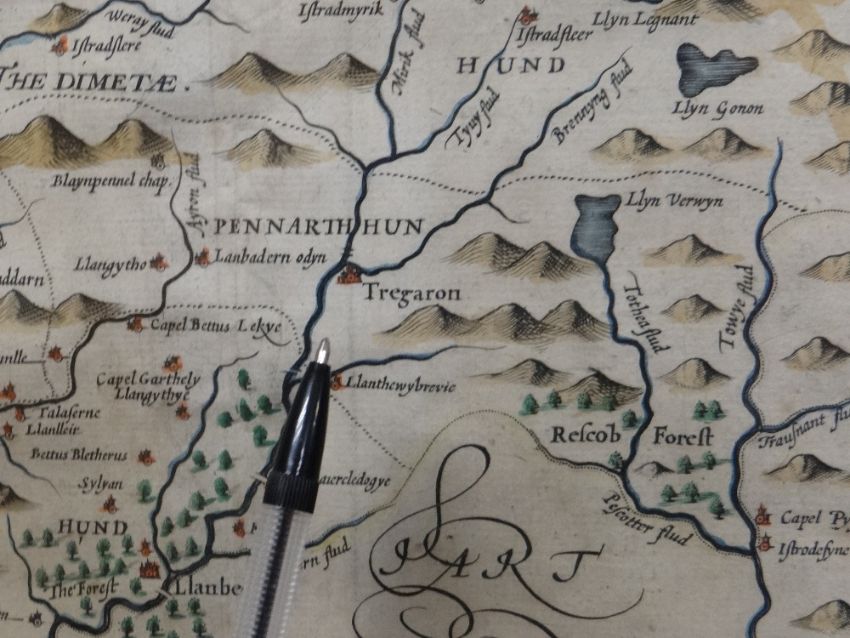 Weray flud
Istradmyrik
Istradflere
Mirik flud
Istradfleer
Llyn Legnant
HUND
THE DIMETÆ.
Llyn Gonon
Tyuy flud
Brennyng flud
Blaynpennel chap.
Ayron flud
Llyn Verwyn
PENNARTH HUN
Llangytho
Lanbadern odyn
ddarn
Tregaron
Tothea flud
Towye flud
Capel Bettus Lekye
Capel Garthely
Llanthewybrevie
Llangythye
Talaserne
Llanlleir
Rescob Forest
Trausnant flu
Bettus Bletherus
Sylyan
auercledogye
Pescotter flud
HUND
Capel Py
Istrodefyne
rn flud
PART
The Forest
Llanbe